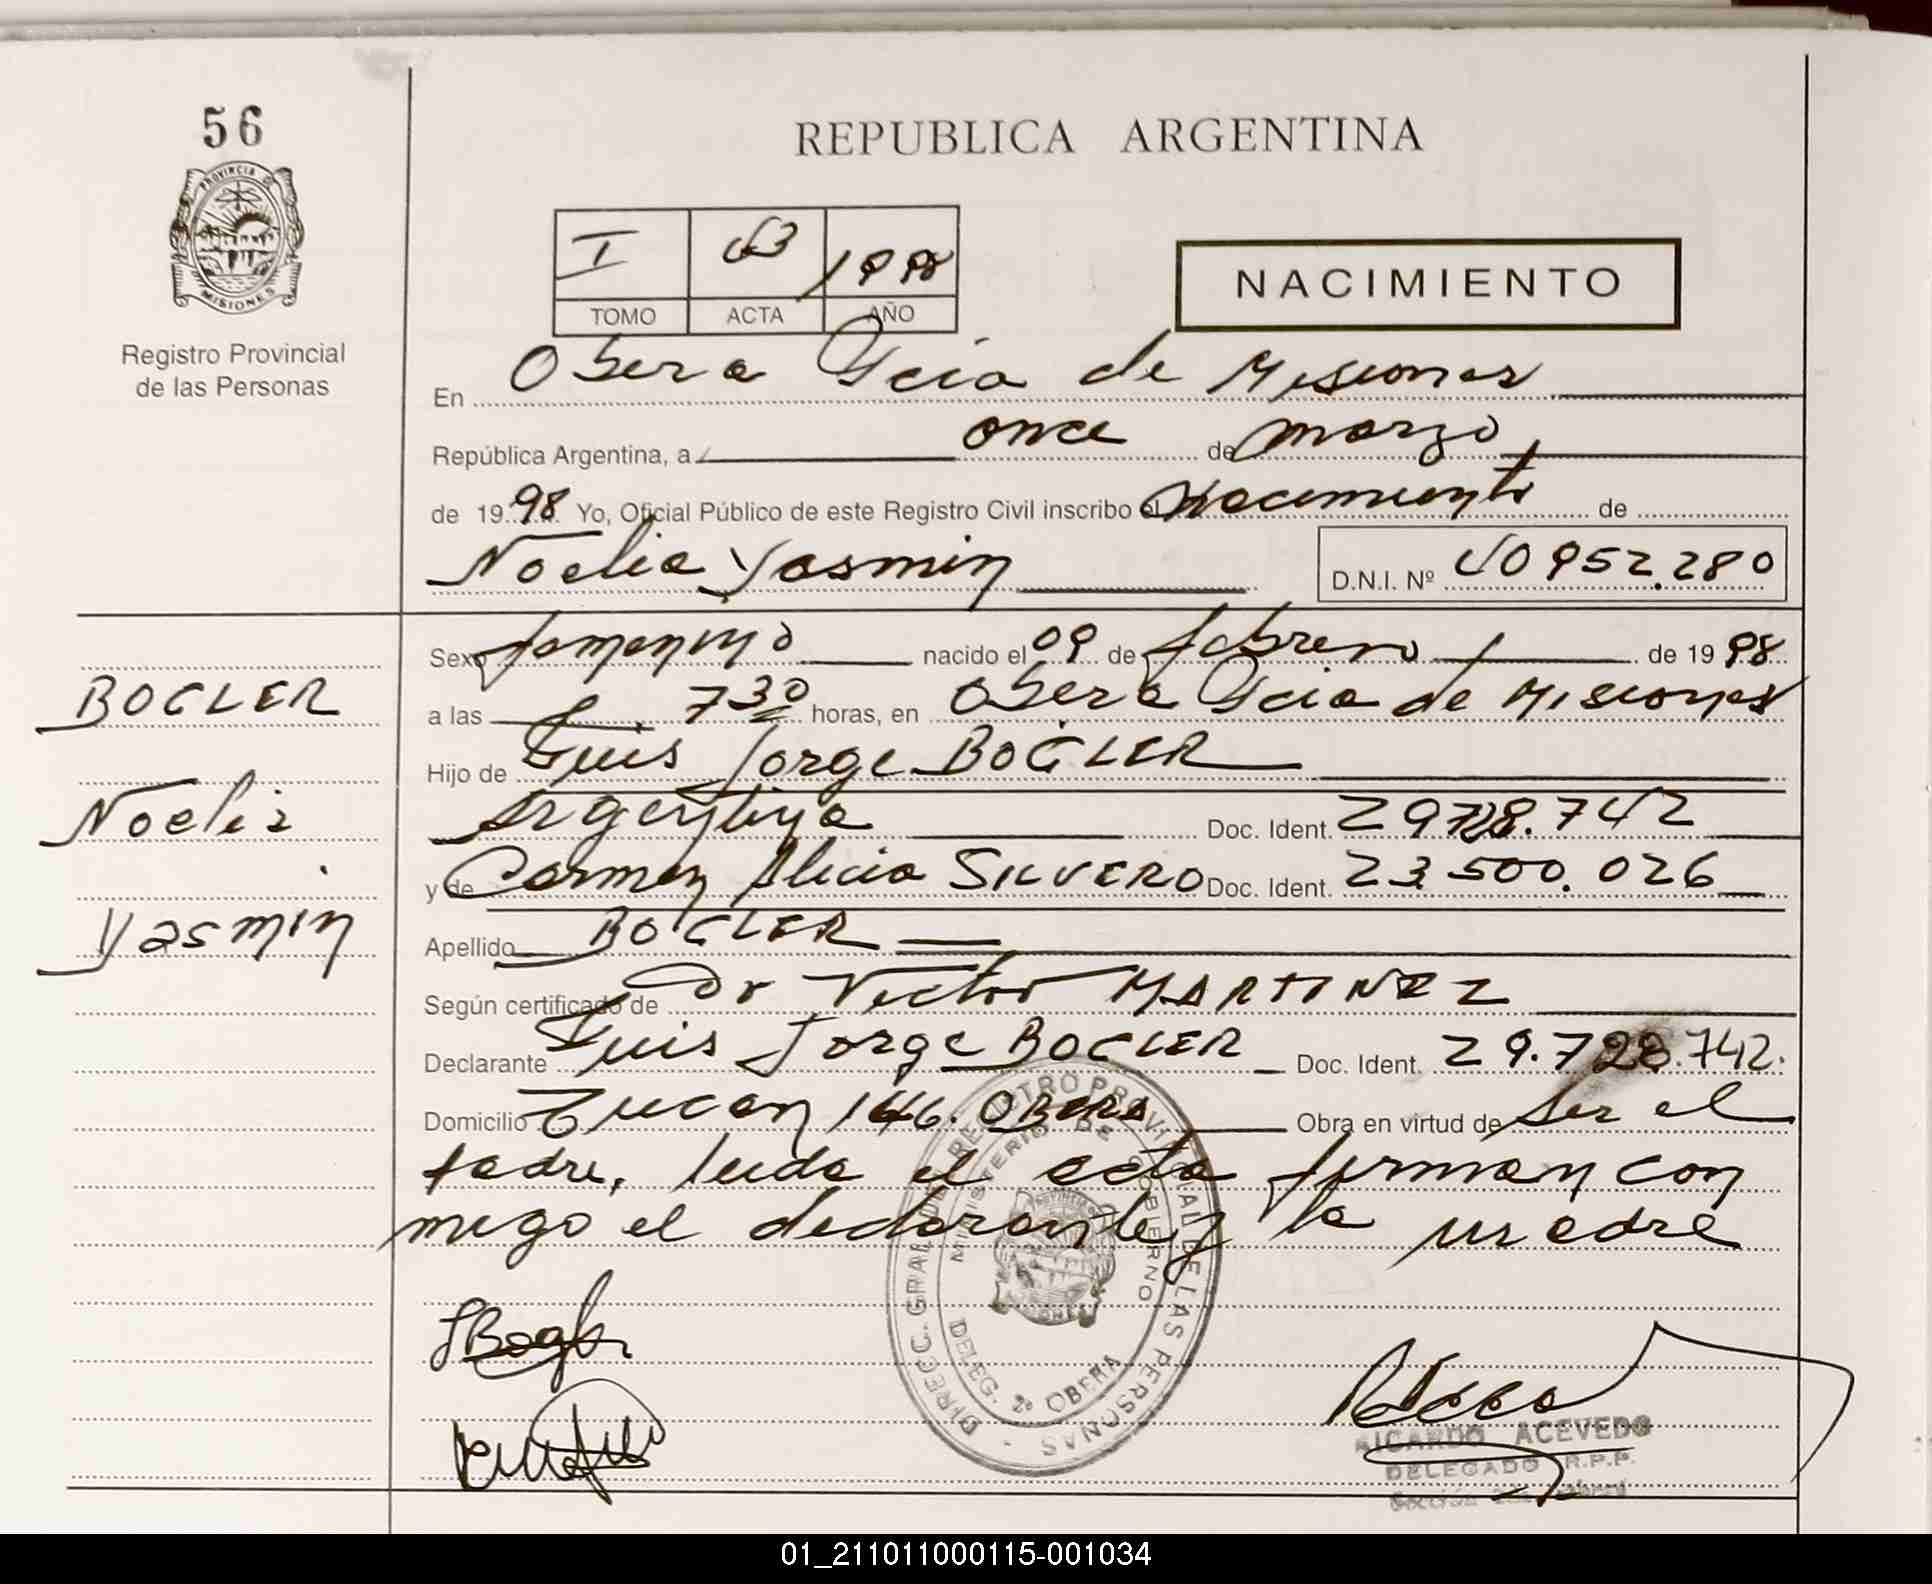 56
PROVINCIA DE
MISIONES
Registro Provincial
de las Personas
REPUBLICA ARGENTINA
I 1998
TOMO ACTA AÑO
NACIMIENTO
En Obera Pcia de Misiones
República Argentina, a once de marzo
de 1998 Yo, Oficial Público de este Registro Civil inscribo el Nacimiento de
Noelia Yasmin D.N.I. Nº 40952.280
Sexo femenino nacido el 09 de febrero de 1998
a las 7 30 horas, en Obera Pcia de Misiones
BOGLER
Hijo de Luis Jorge BOGLER
Noelia
Argentina Doc. Ident. 29728.742
y de Carmen Alicia SILVERO Doc. Ident. 23.500.026
Yasmin
Apellido BOGLER
Según certificado de Dr Victor MARTINEZ
Declarante Luis Jorge BOGLER Doc. Ident. 29.728.742.
Domicilio Tucan 146. OBERA Obra en virtud de ser el
padre, leida el acta firman con
migo el declarante y la madre
DIRECC. GRAL. DEL REGISTRO PROVINCIAL DE LAS PERSONAS
MINISTERIO DE GOBIERNO
DELEG. 2º OBERA
RICARDO ACEVEDO
DELEGADO R.P.P.
01_211011000115-001034